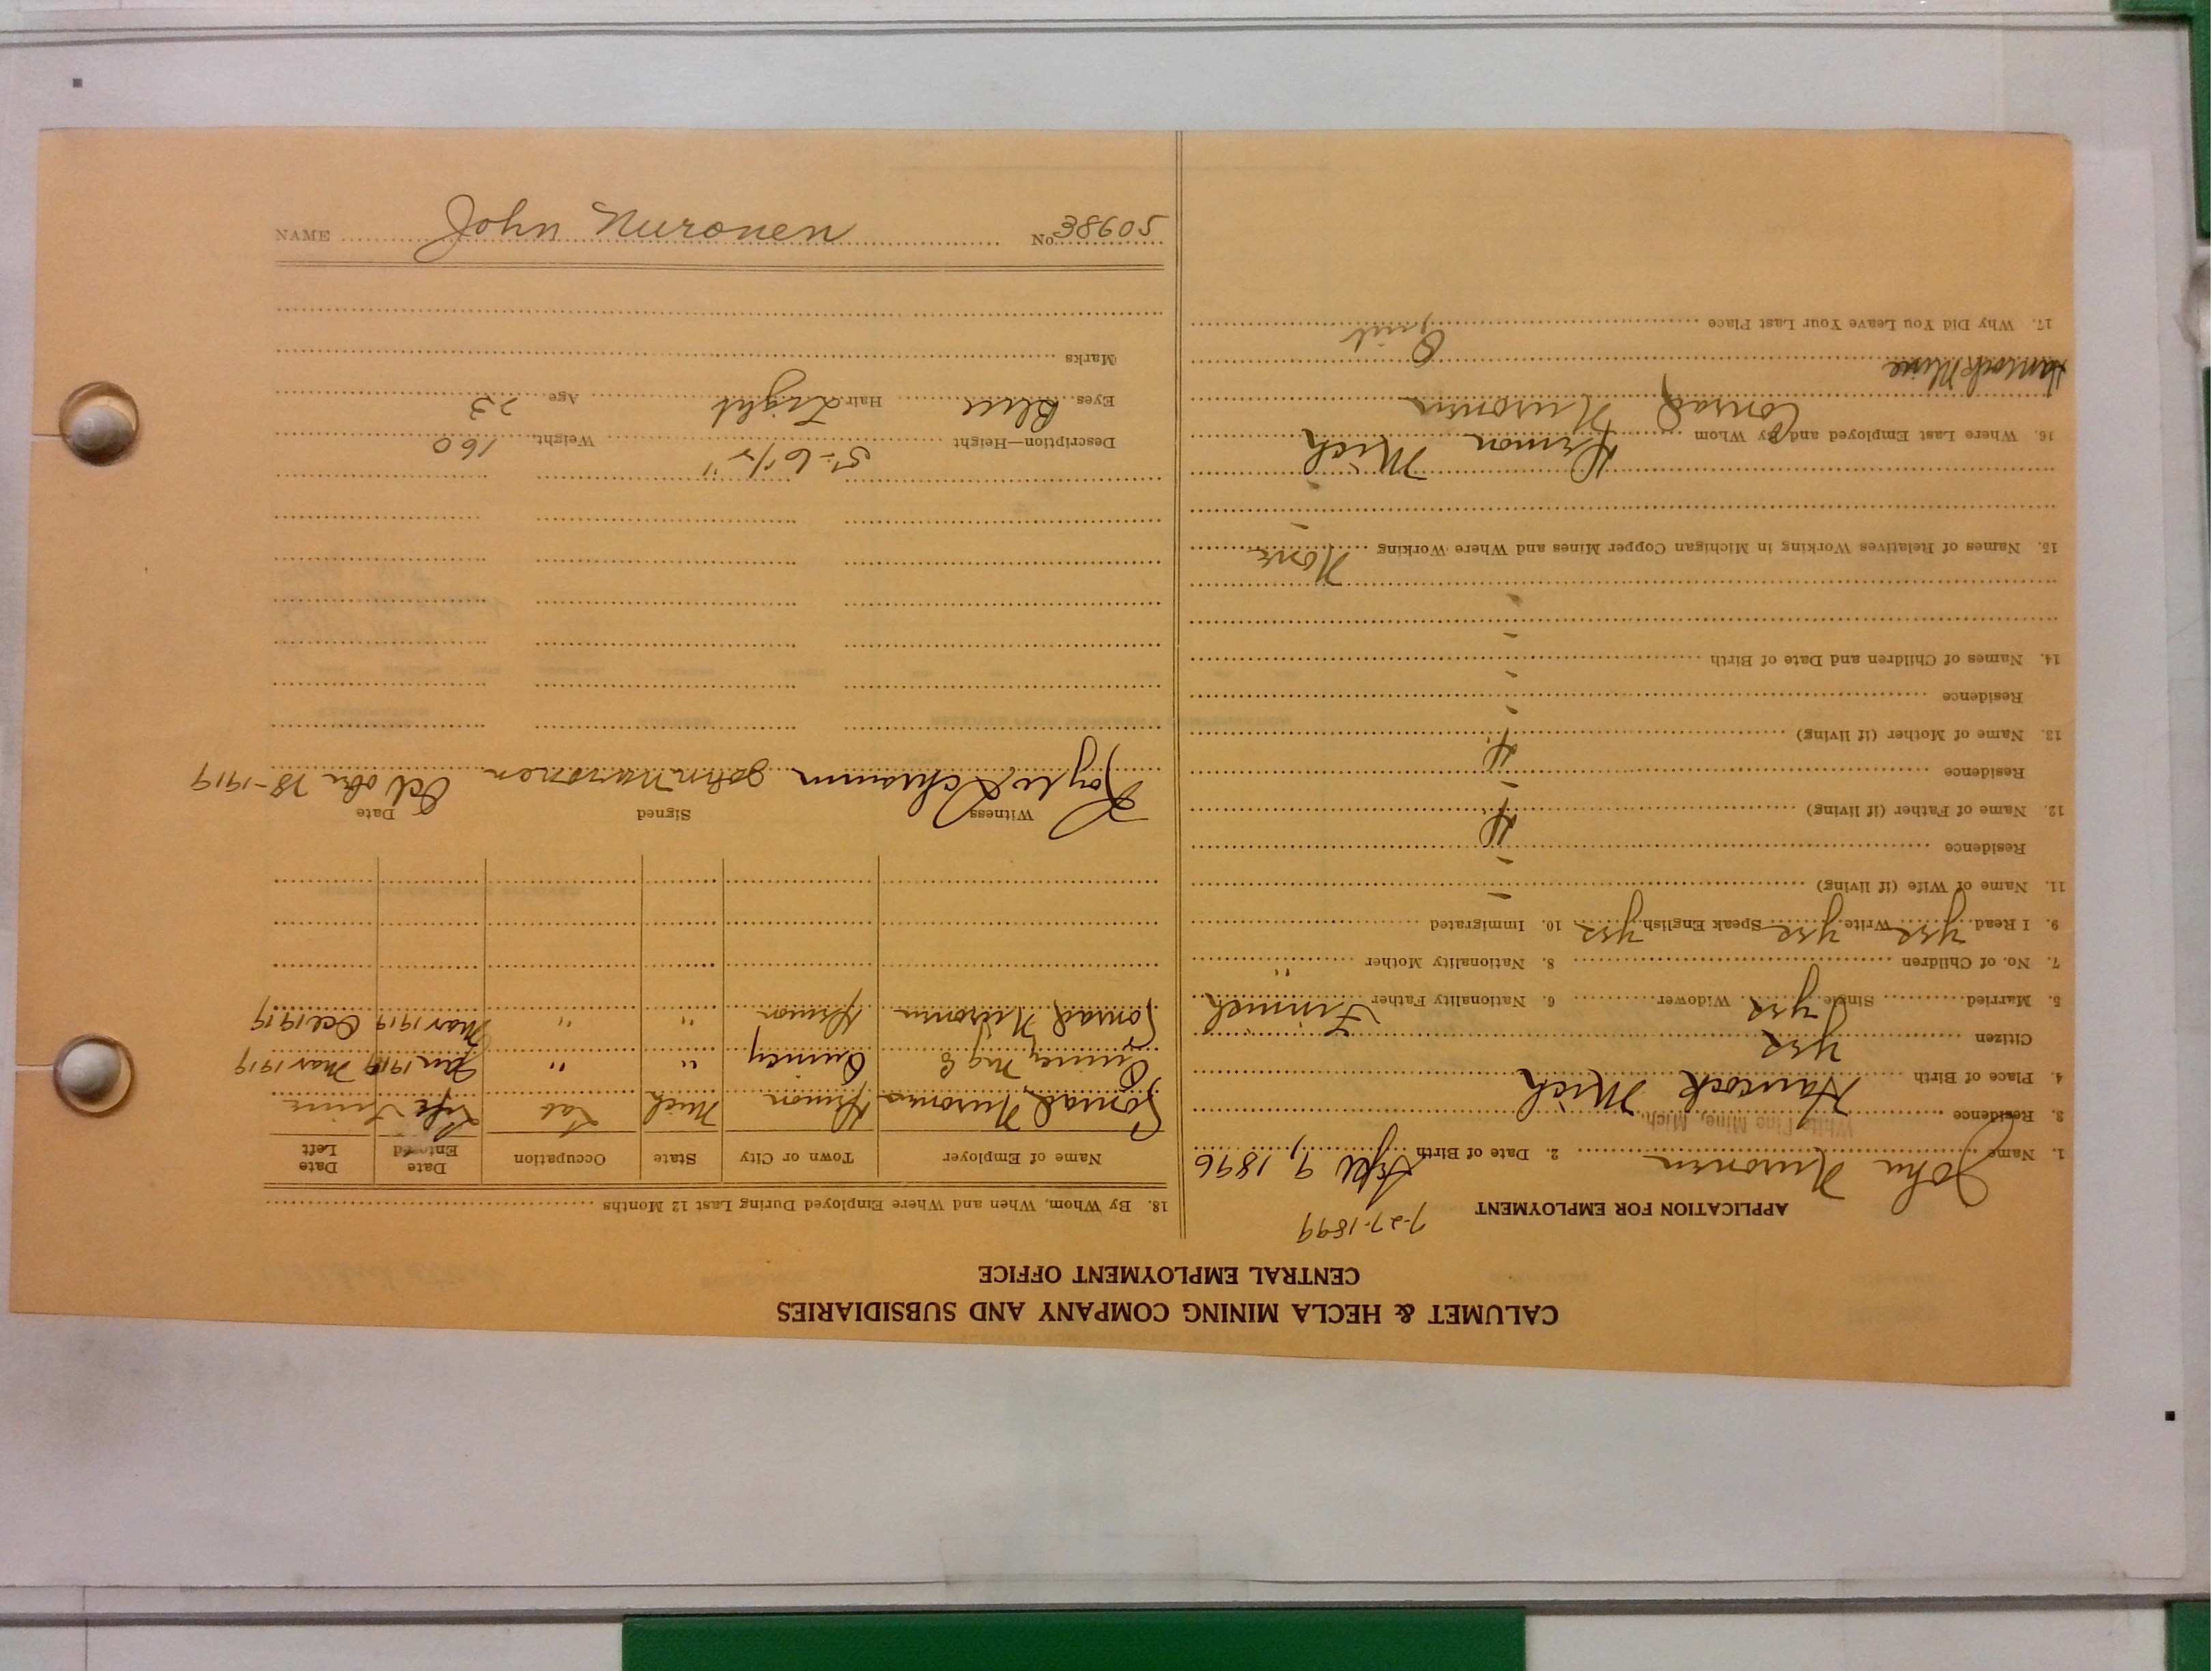 CALUMET & HECLA MINING COMPANY AND SUBSIDIARIES
CENTRAL EMPLOYMENT OFFICE
APPLICATION FOR EMPLOYMENT
7-27-1899
1. Name John Nuronen 2. Date of Birth 9, 1896
White Pine Mine, Mich.
3. Residence
4. Place of Birth Hancock Mich
Citizen yes
5. Married Single yes Widower 6. Nationality Father Finnish
7. No. of Children 8. Nationality Mother "
9. I Read yes Write yes Speak English yes 10. Immigrated
11. Name of Wife (if living) -
Residence -
12. Name of Father (if living) d
Residence -
13. Name of Mother (if living) d
Residence -
14. Names of Children and Date of Birth -
15. Names of Relatives Working in Michigan Copper Mines and Where Working None
16. Where Last Employed and By Whom Mich
Conrad Nuronen
Hancock Mine
17. Why Did You Leave Your Last Place Quit
18. By Whom, When and Where Employed During Last 12 Months
Name of Employer Town or City State Occupation Date Entered Date Left
Conrad Nuronen Mich Lab Life
Quincy Mg Co Quincy " " Jan 1919 Mar 1919
Conrad Nuronen " " Mar 1919 Oct 1919
Witness Signed Date
John Nuronen 28-1919
Description—Height 5'-6 1/2" Weight 160
Eyes Blue Hair Light Age 23
Marks
NAME John Nuronen No. 38605